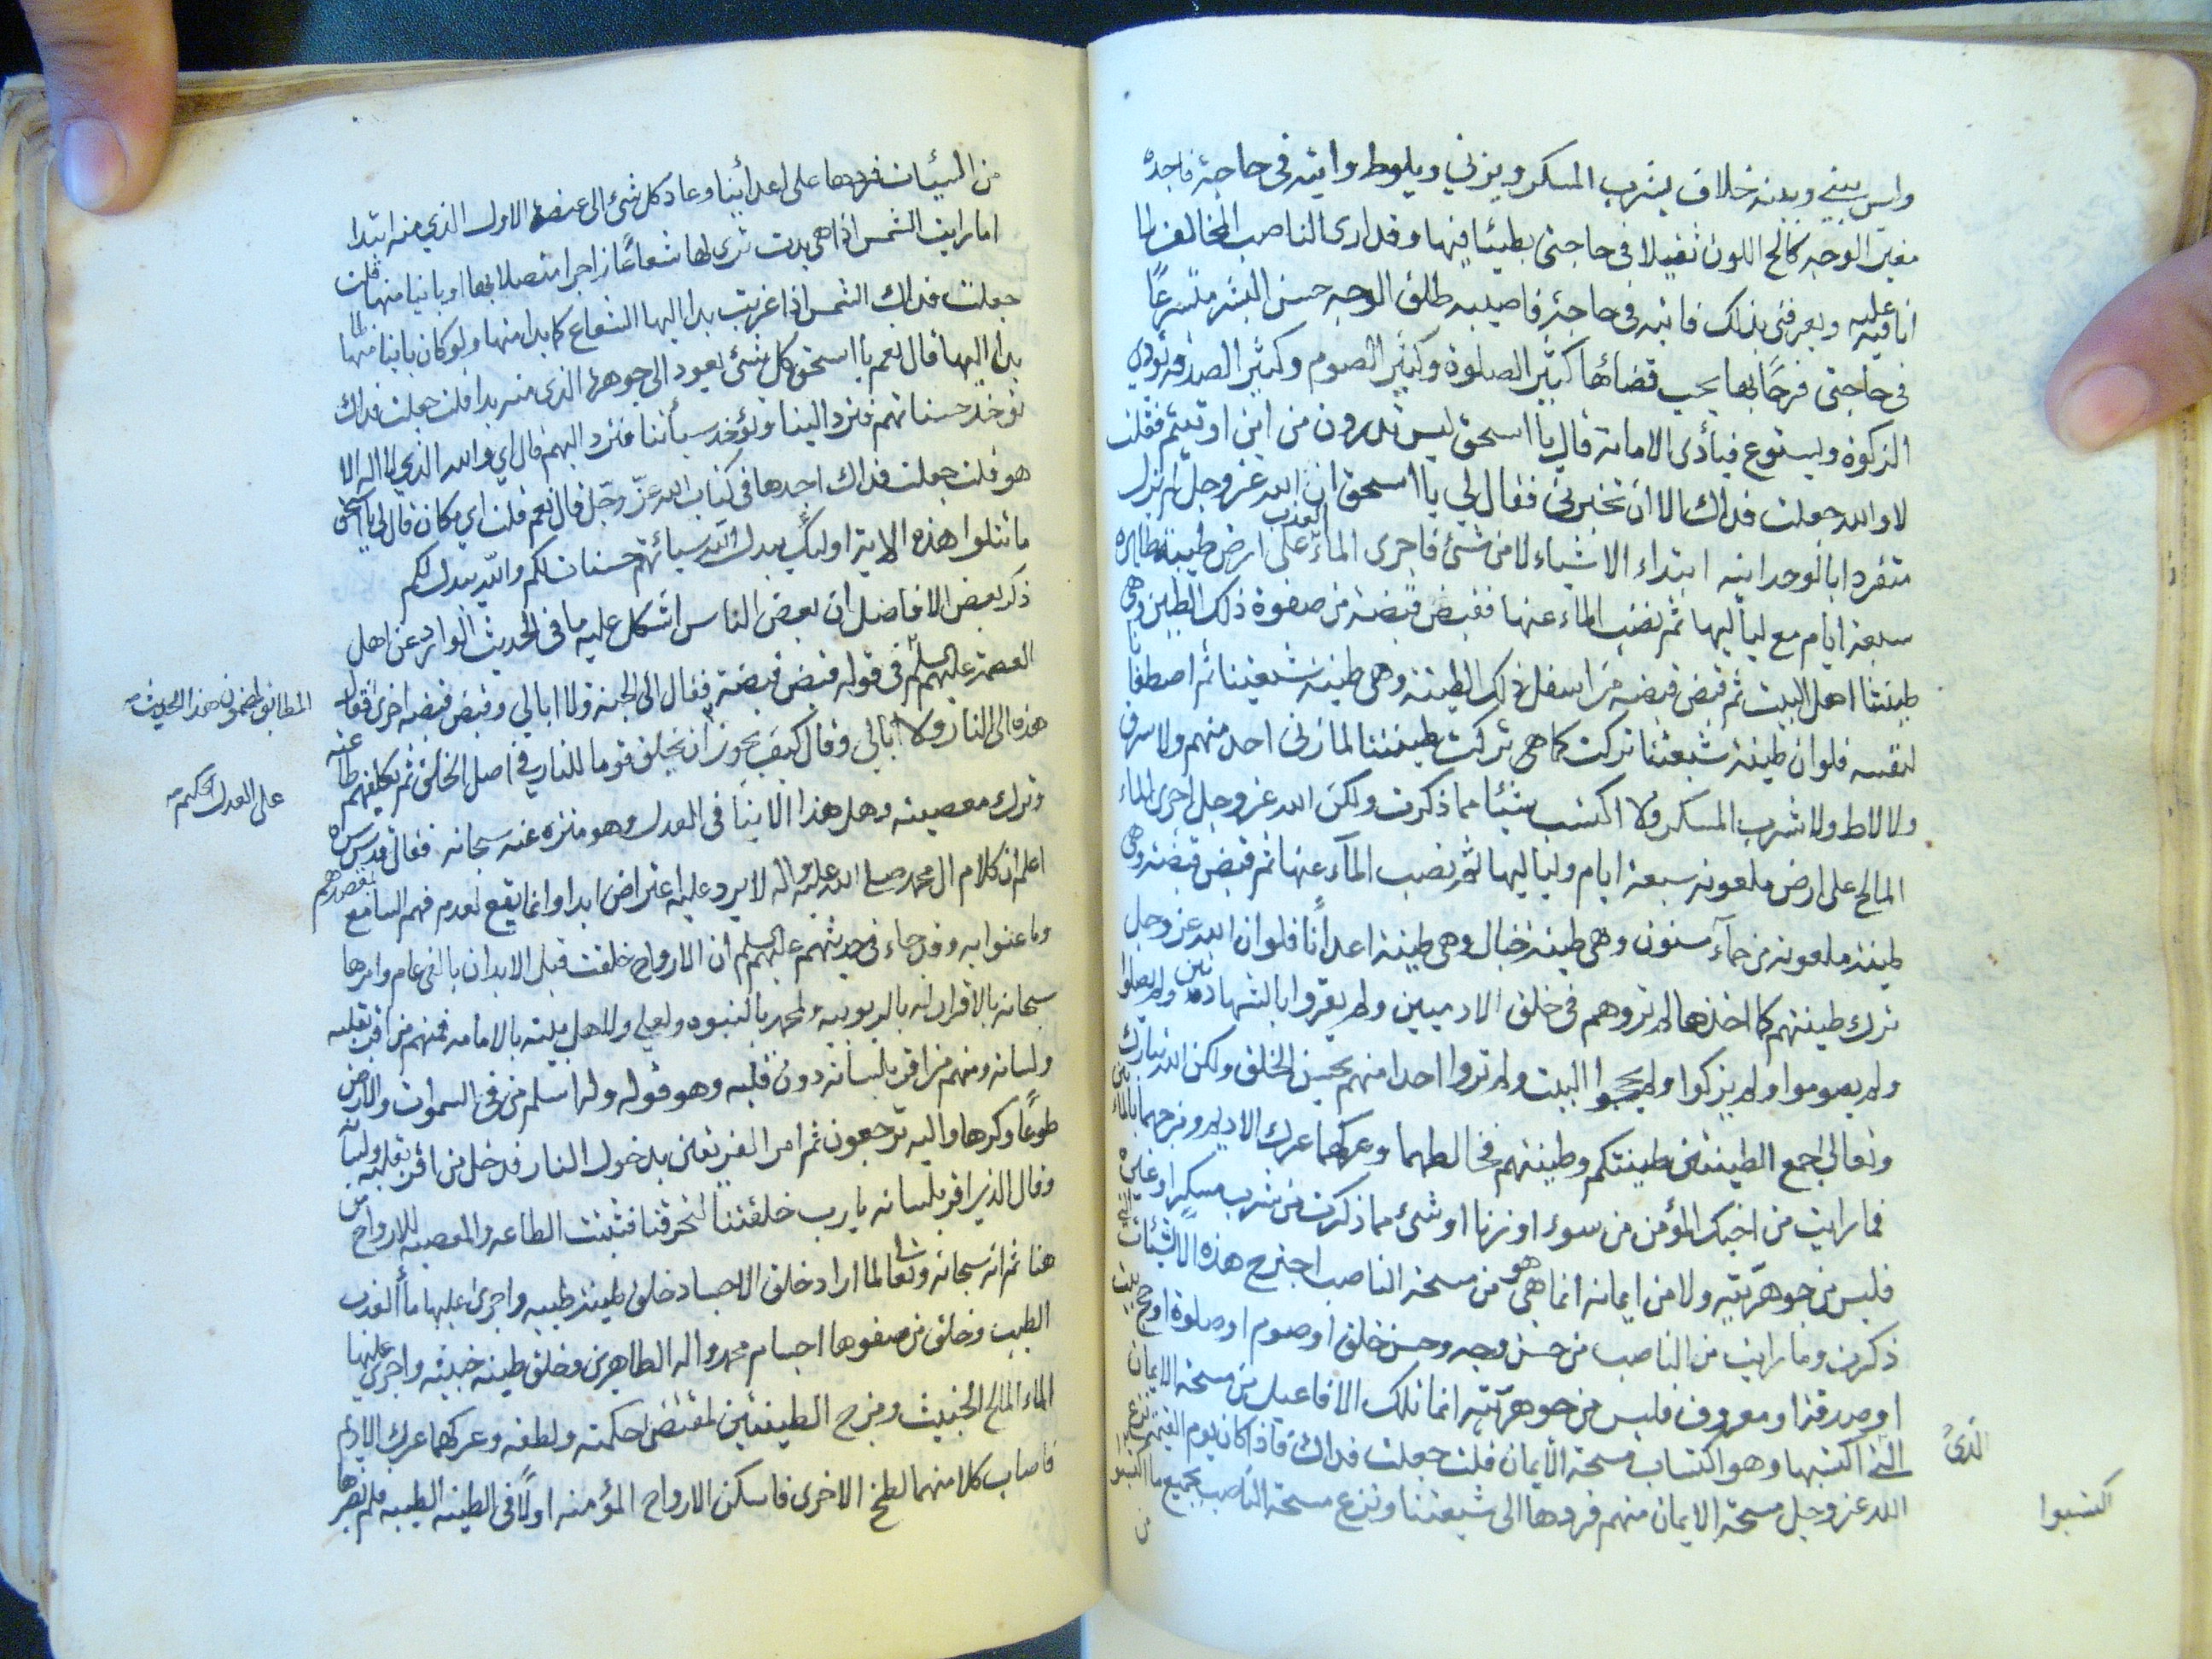 وليس بيني وبينه خلاف يشرب المسكر ويزني ويلوط واتيه في حاجة فاجده
مغير الوجه كالح اللون ثقيلا في حاجتي بطيئا فيها وقد ارى الناصب المخالف لما
انا عليه ويعرفني بذلك فاتيه في حاجة فاصيبه طلق الوجه حسن البشر متسرعا
في حاجتي فرحا بها يحب قضائها كثير الصلوة وكثير الصوم وكثير الصدقه يؤدي
الزكوة ويستودع فيأدى الامانة قال يا اسحق ليس تدرون من اين اوتيتم فقلت
لا والله جعلت فداك الا ان تخبرني فقال لي يا اسحق ان الله عز وجل لم يزل
متفردا بالوحدانيه ابتداء الاشياء لا من شئ فاجرى الماء العذب على ارض طيبة طاهره
سبعة ايام مع لياليها ثم نضب الماء عنها فقبض قبضة من صفوة ذلك الطين وهي
طينتنا اهل البيت ثم قبض قبضه من اسفل ذلك الطينة وهي طينة شيعتنا ثم اصطفانا
لنفسه فلو ان طينة شيعتنا تركت كما هي تركت طينتنا لما زنى احد منهم ولا سرق
ولا لاط ولا شرب المسكر ولا اكتسب شيئا مما ذكرت ولكن الله عز وجل اجرى الماء
المالح على ارض ملعونه سبعة ايام ولياليها ثم نضب الماء عنها ثم قبض قبضة وهي
طينة ملعونه من حمآء مسنون وهي طينة خبال وهي طينة اعدائنا فلو ان الله عز وجل
ترك طينتهم كما اخذها لم تروهم في خلق الادميين ولم يقروا بالشهادتين ولم يصلوا
ولم يصوموا ولم يزكوا ولم يحجوا البيت ولم تروا احدا منهم بحسن الخلق ولكن الله تبارك
وتعالى جمع الطينتين طينتكم وطينتهم فخالطهما وعركهما عرك الاديم ومزجهما بالمائين
فما رايت من اخيك المؤمن من سوء او زنا او شئ مما ذكرت من شرب مسكر او غيره
فليس من جوهريته ولا من ايمانه انما هو من مسحة الناصب اجترح هذه السيئات التي
ذكرت وما رايت من الناصب من حسن وجه وحسن خلق او صوم او صلوة او حج بيت
او صدقة او معروف فليس من جوهريته انما تلك الافاعيل من مسحة الايمان
التي اكتسبها وهو اكتساب مسحة الايمان قلت جعلت فداك فاذا كان يوم القيمة نزع
الله عز وجل مسحة الايمان منهم فردها الى شيعتنا ونزع مسحة الناصب بجميع ما اكتسبوا
من
الذي
اكتسبوا
من السيئات فردها على اعدائنا وعاد كل شئ الى عنصره الاول الذي منه ابتدا
اما رايت الشمس اذا هي بدت ترى لها شعاعا زاجرا متصلا بها او باينا منها قلت
جعلت فداك الشمس اذا غربت بدا اليها الشعاع كما بدا منها ولو كان باينا منها لما
بدا اليها قال نعم يا اسحق كل شئ يعود الى جوهره الذي منه بدا قلت جعلت فداك
توخذ حسناتهم فترد الينا وتؤخذ سيأتنا فترد اليهم قال اي والله الذي لا اله الا
هو قلت جعلت فداك اجدها في كتاب الله عز وجل قال نعم قلت اي مكان قال لي يا اسحق
ما تتلوا هذه الاية اولئك يبدل الله سيئاتهم حسنات لكم والله يبدل لكم
ذكر بعض الافاضل ان بعض الناس اشكل عليه ما في الحديث الوارد عن اهل
العصمة عليهم السلم في قوله قبض قبضة فقال الى الجنة ولا ابالي وقبض قبضه اخرى فقال
هذه الى النار ولا ابالي وقال كيف يجوز ان يخلق قوما للنار في اصل الخلق ثم يكلفهم طاعته
وترك معصيته وهل هذا الا ينافي العدل وهو منزه عنه سبحانه فقال قدس سره
اعلم ان كلام ال محمد صلى الله عليه واله لا يرد عليه اعتراض ابدا وانما يقع لعدم فهم السامع بقصدهم
وما عنوا به وقد جاء في حديثهم عليهم السلم ان الارواح خلقت قبل الابدان بالفي عام وامرها
سبحانه بالاقرار له بالربوبيه ولمحمد بالنبوه ولعلي ولاهل بيته بالامامه فمنهم من اقر بقلبه
ولسانه ومنهم من اقر بلسانه دون قلبه وهو قوله وله اسلم من في السموات والارض
طوعا وكرها واليه ترجعون ثم امر الفريقين بدخول النار فدخل من اقر بقلبه ولسانه
وقال الذي اقر بلسانه يا رب خلقتنا لتحرقنا فثبتت الطاعه والمعصيه للارواح من
هنا ثم انه سبحانه وتعالى لما اراد خلق الاجساد خلق طينة طيبه واجرى عليها ماء العذب
الطيب وخلق من صفوها اجسام محمد واله الطاهرين وخلق طينه خبيثه واجرى عليها
الماء المالح الخبيث ومزج الطينتين لمقتضى حكمته ولطفه وعركهما عرك الاديم
فاصاب كلا منهما لطخ الاخرى فاسكن الارواح المؤمنه اولا في الطينه الطيبه فلم يضرها
المطابق لمضمون هذا الحديث
على العدل الحكيم